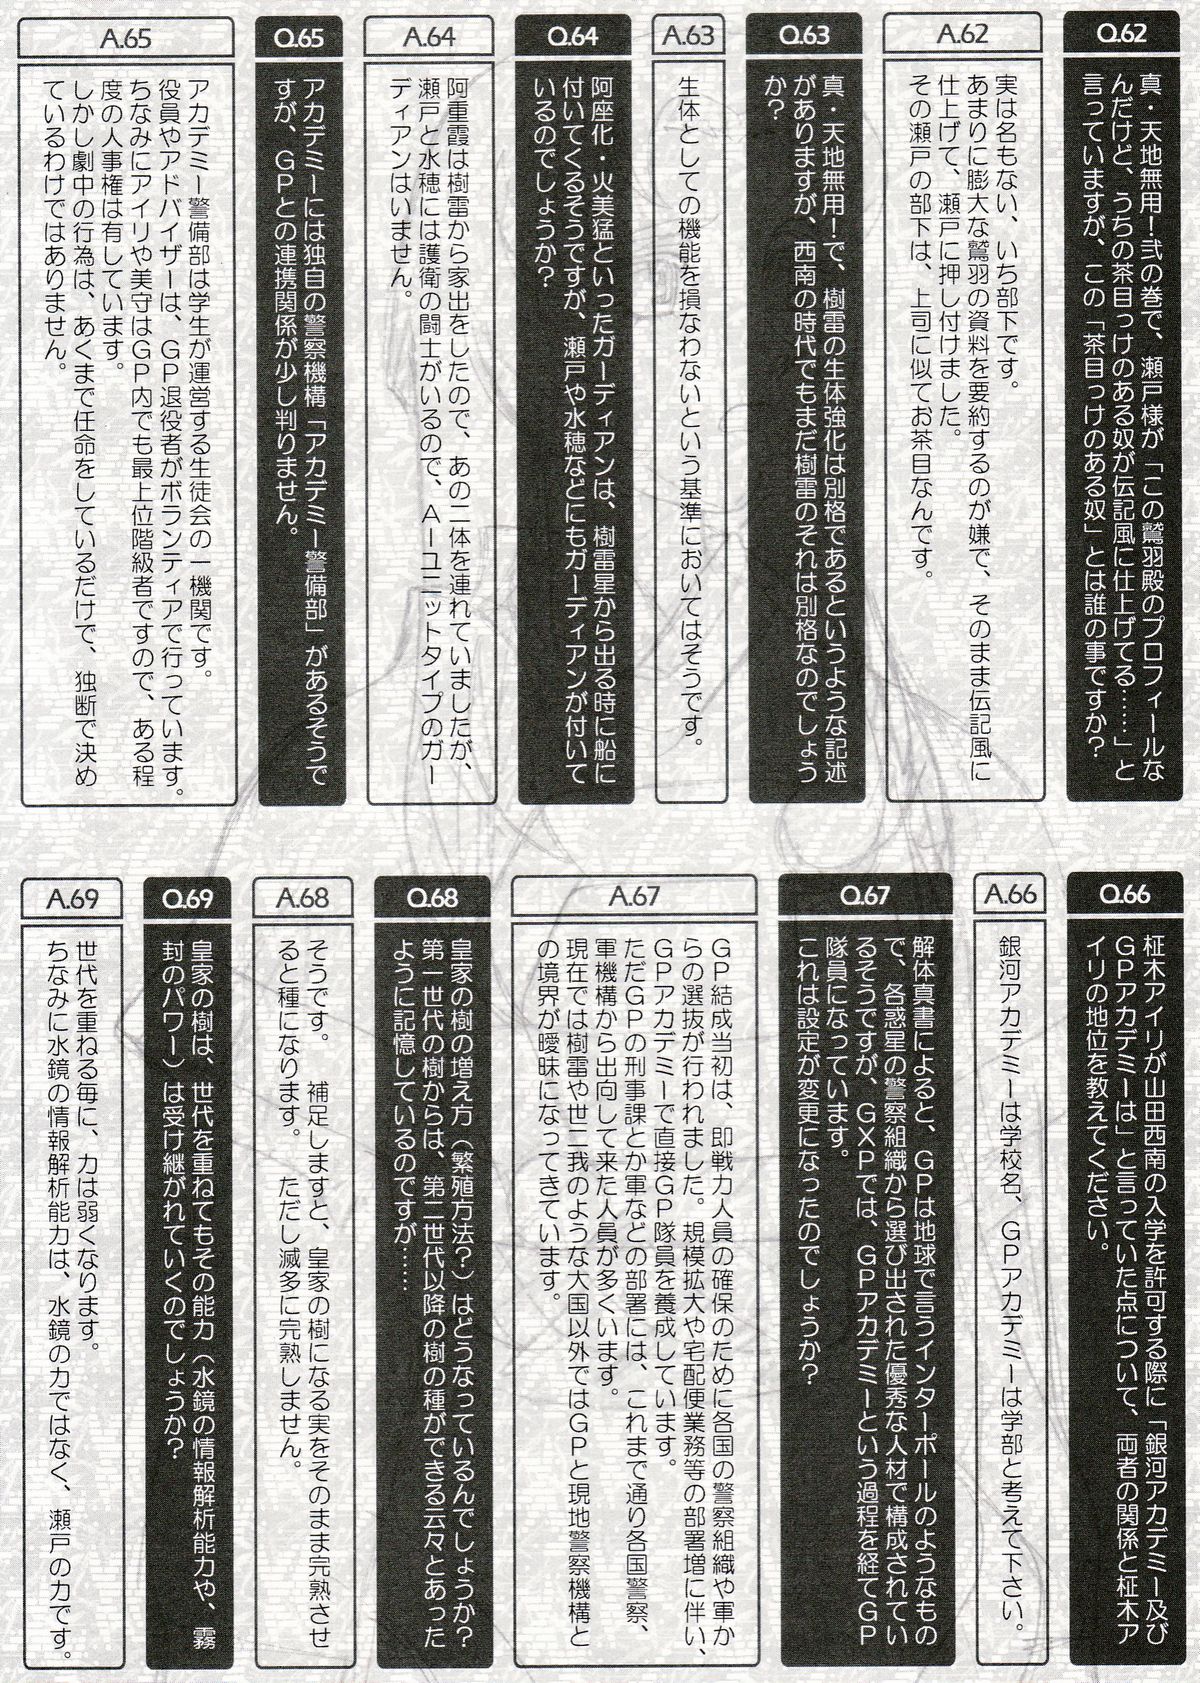 Q.62
真・天地無用！弐の巻で、瀬戸様が「この鷲羽殿のプロフィールな
んだけど、うちの茶目っけのある奴が伝記風に仕上げてる……」と
言っていますが、この「茶目っけのある奴」とは誰の事ですか？
A.62
実は名もない、いち部下です。
あまりに膨大な鷲羽の資料を要約するのが嫌で、そのまま伝記風に
仕上げて、瀬戸に押し付けました。
その瀬戸の部下は、上司に似てお茶目なんです。
Q.63
真・天地無用！で、樹雷の生体強化は別格であるというような記述
がありますが、西南の時代でもまだ樹雷のそれは別格なのでしょう
か？
A.63
生体としての機能を損なわないという基準においてはそうです。
Q.64
阿座化・火美猛といったガーディアンは、樹雷星から出る時に船に
付いてくるそうですが、瀬戸や水穂などにもガーディアンが付いて
いるのでしょうか？
A.64
阿重霞は樹雷から家出をしたので、あの二体を連れていましたが、
瀬戸と水穂には護衛の闘士がいるので、ＡＩユニットタイプのガー
ディアンはいません。
Q.65
アカデミーには独自の警察機構「アカデミー警備部」があるそうで
すが、ＧＰとの連携関係が少し判りません。
A.65
アカデミー警備部は学生が運営する生徒会の一機関です。
役員やアドバイザーは、ＧＰ退役者がボランティアで行っています。
ちなみにアイリや美守はＧＰ内でも最上位階級者ですので、ある程
度の人事権は有しています。
しかし劇中の行為は、あくまで任命をしているだけで、独断で決め
ているわけではありません。
Q.66
柾木アイリが山田西南の入学を許可する際に「銀河アカデミー及び
ＧＰアカデミーは」と言っていた点について、両者の関係と柾木ア
イリの地位を教えてください。
A.66
銀河アカデミーは学校名、ＧＰアカデミーは学部と考えて下さい。
Q.67
解体真書によると、ＧＰは地球で言うインターポールのようなもの
で、各惑星の警察組織から選び出された優秀な人材で構成されてい
るそうですが、ＧＸＰでは、ＧＰアカデミーという過程を経てＧＰ
隊員になっています。
これは設定が変更になったのでしょうか？
A.67
ＧＰ結成当初は、即戦力人員の確保のために各国の警察組織や軍か
らの選抜が行われました。規模拡大や宅配便業務等の部署増に伴い、
ＧＰアカデミーで直接ＧＰ隊員を養成しています。
ただＧＰの刑事課とか軍などの部署には、これまで通り各国警察、
軍機構から出向して来た人員が多くいます。
現在では樹雷や世二我のような大国以外ではＧＰと現地警察機構と
の境界が曖昧になってきています。
Q.68
皇家の樹の増え方（繁殖方法？）はどうなっているんでしょうか？
第一世代の樹からは、第二世代以降の樹の種ができる云々とあった
ように記憶しているのですが……
A.68
そうです。　補足しますと、皇家の樹になる実をそのまま完熟させ
ると種になります。　ただし滅多に完熟しません。
Q.69
皇家の樹は、世代を重ねてもその能力（水鏡の情報解析能力や、霧
封のパワー）は受け継がれていくのでしょうか？
A.69
世代を重ねる毎に、力は弱くなります。
ちなみに水鏡の情報解析能力は、水鏡の力ではなく、瀬戸の力です。